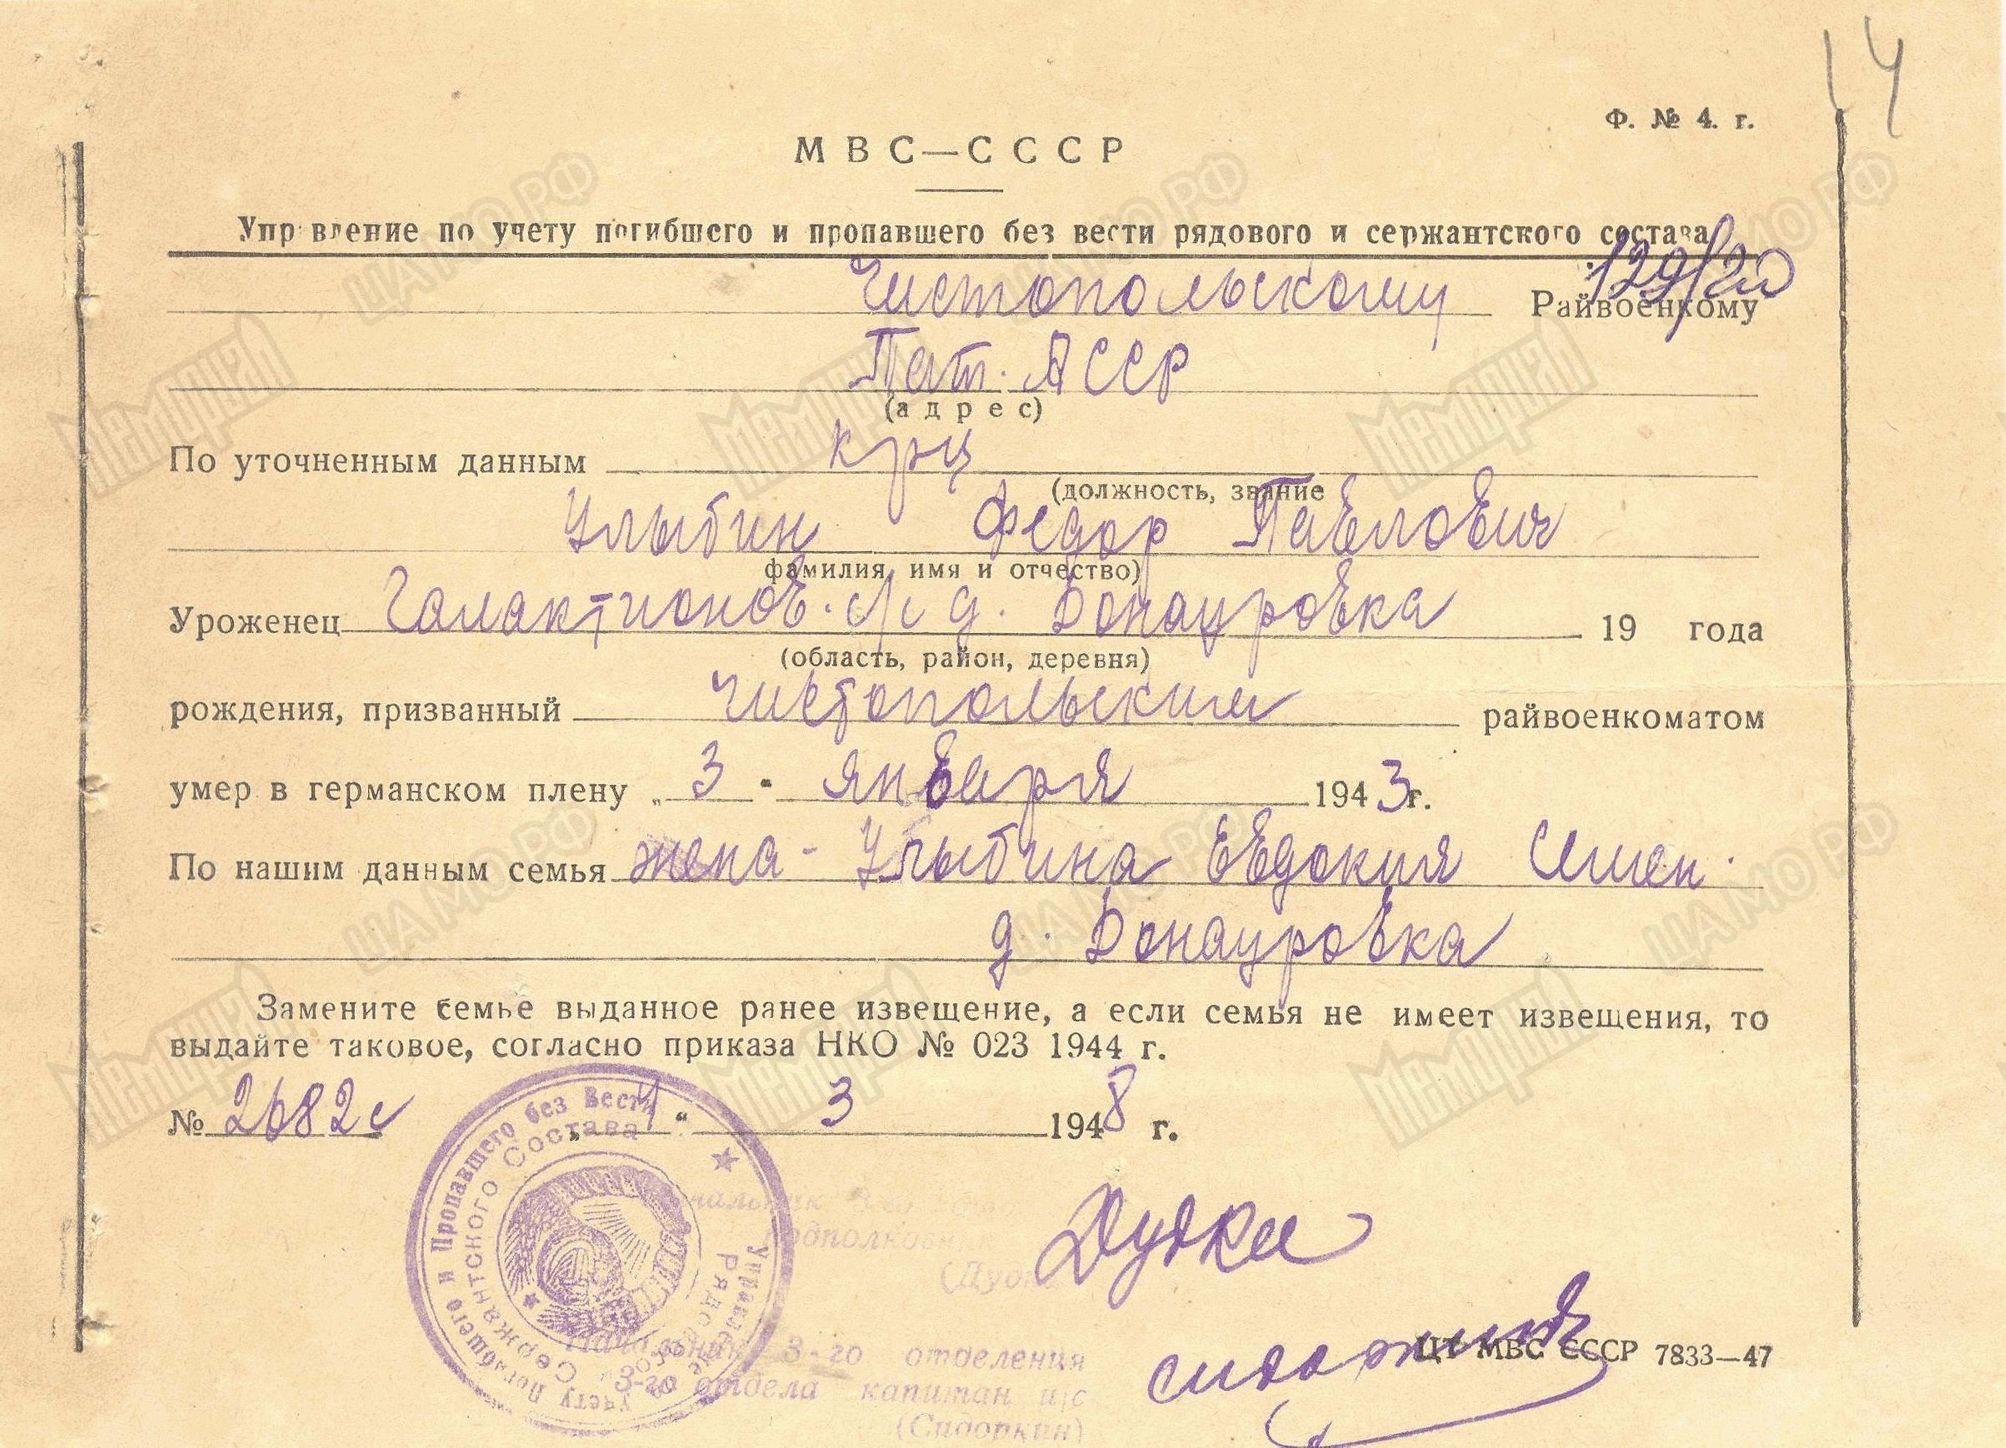 14
Ф. № 4. г.
МВС—СССР
Управление по учету погибшего и пропавшего без вести рядового и сержантского состава
129/20
Чистопольскому Райвоенкому
Тат. АССР
(адрес)
По уточненным данным крц
(должность, звание
Улыбин Федор Павлович
фамилия, имя и отчество)
Уроженец Галактионов. с/с д. Донауровка 19 года
(область, район, деревня)
рождения, призванный Чистопольским райвоенкоматом
умер в германском плену „3" января 1943 г.
По нашим данным семья жена - Улыбина Евдокия Семен.
д. Донауровка
Замените семье выданное ранее извещение, а если семья не имеет извещения, то
выдайте таковое, согласно приказа НКО № 023 1944 г.
№ 2682с „4" 3 1948 г.
Управление по учету Погибшего и Пропавшего без Вести
Рядового и Сержантского Состава
Дудка
Начальник 3-го отделения
3-го отдела капитан и/с
(Сидоркин)
Сидоркин
ЦТ МВС СССР 7833—47
ЦАМО РФ
Мемориал